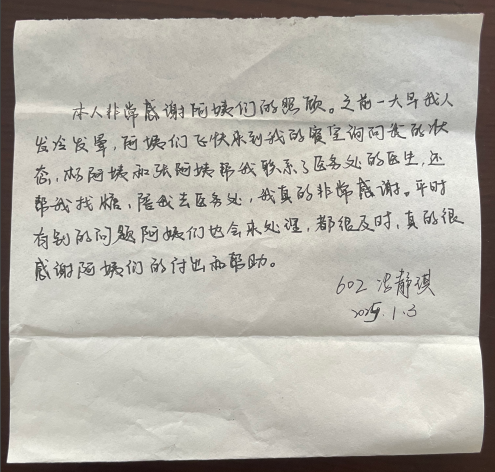 本人非常感谢阿姨们的照顾。之前一大早我人
发冷发晕，阿姨们飞快来到我的寝室询问我的状
态，杨阿姨和张阿姨帮我联系了医务处的医生，还
帮我找糖，陪我去医务处，我真的非常感谢。平时
有别的问题阿姨们也会来处理，都很及时，真的很
感谢阿姨们的付出和帮助。
602 静琪
2025.1.3